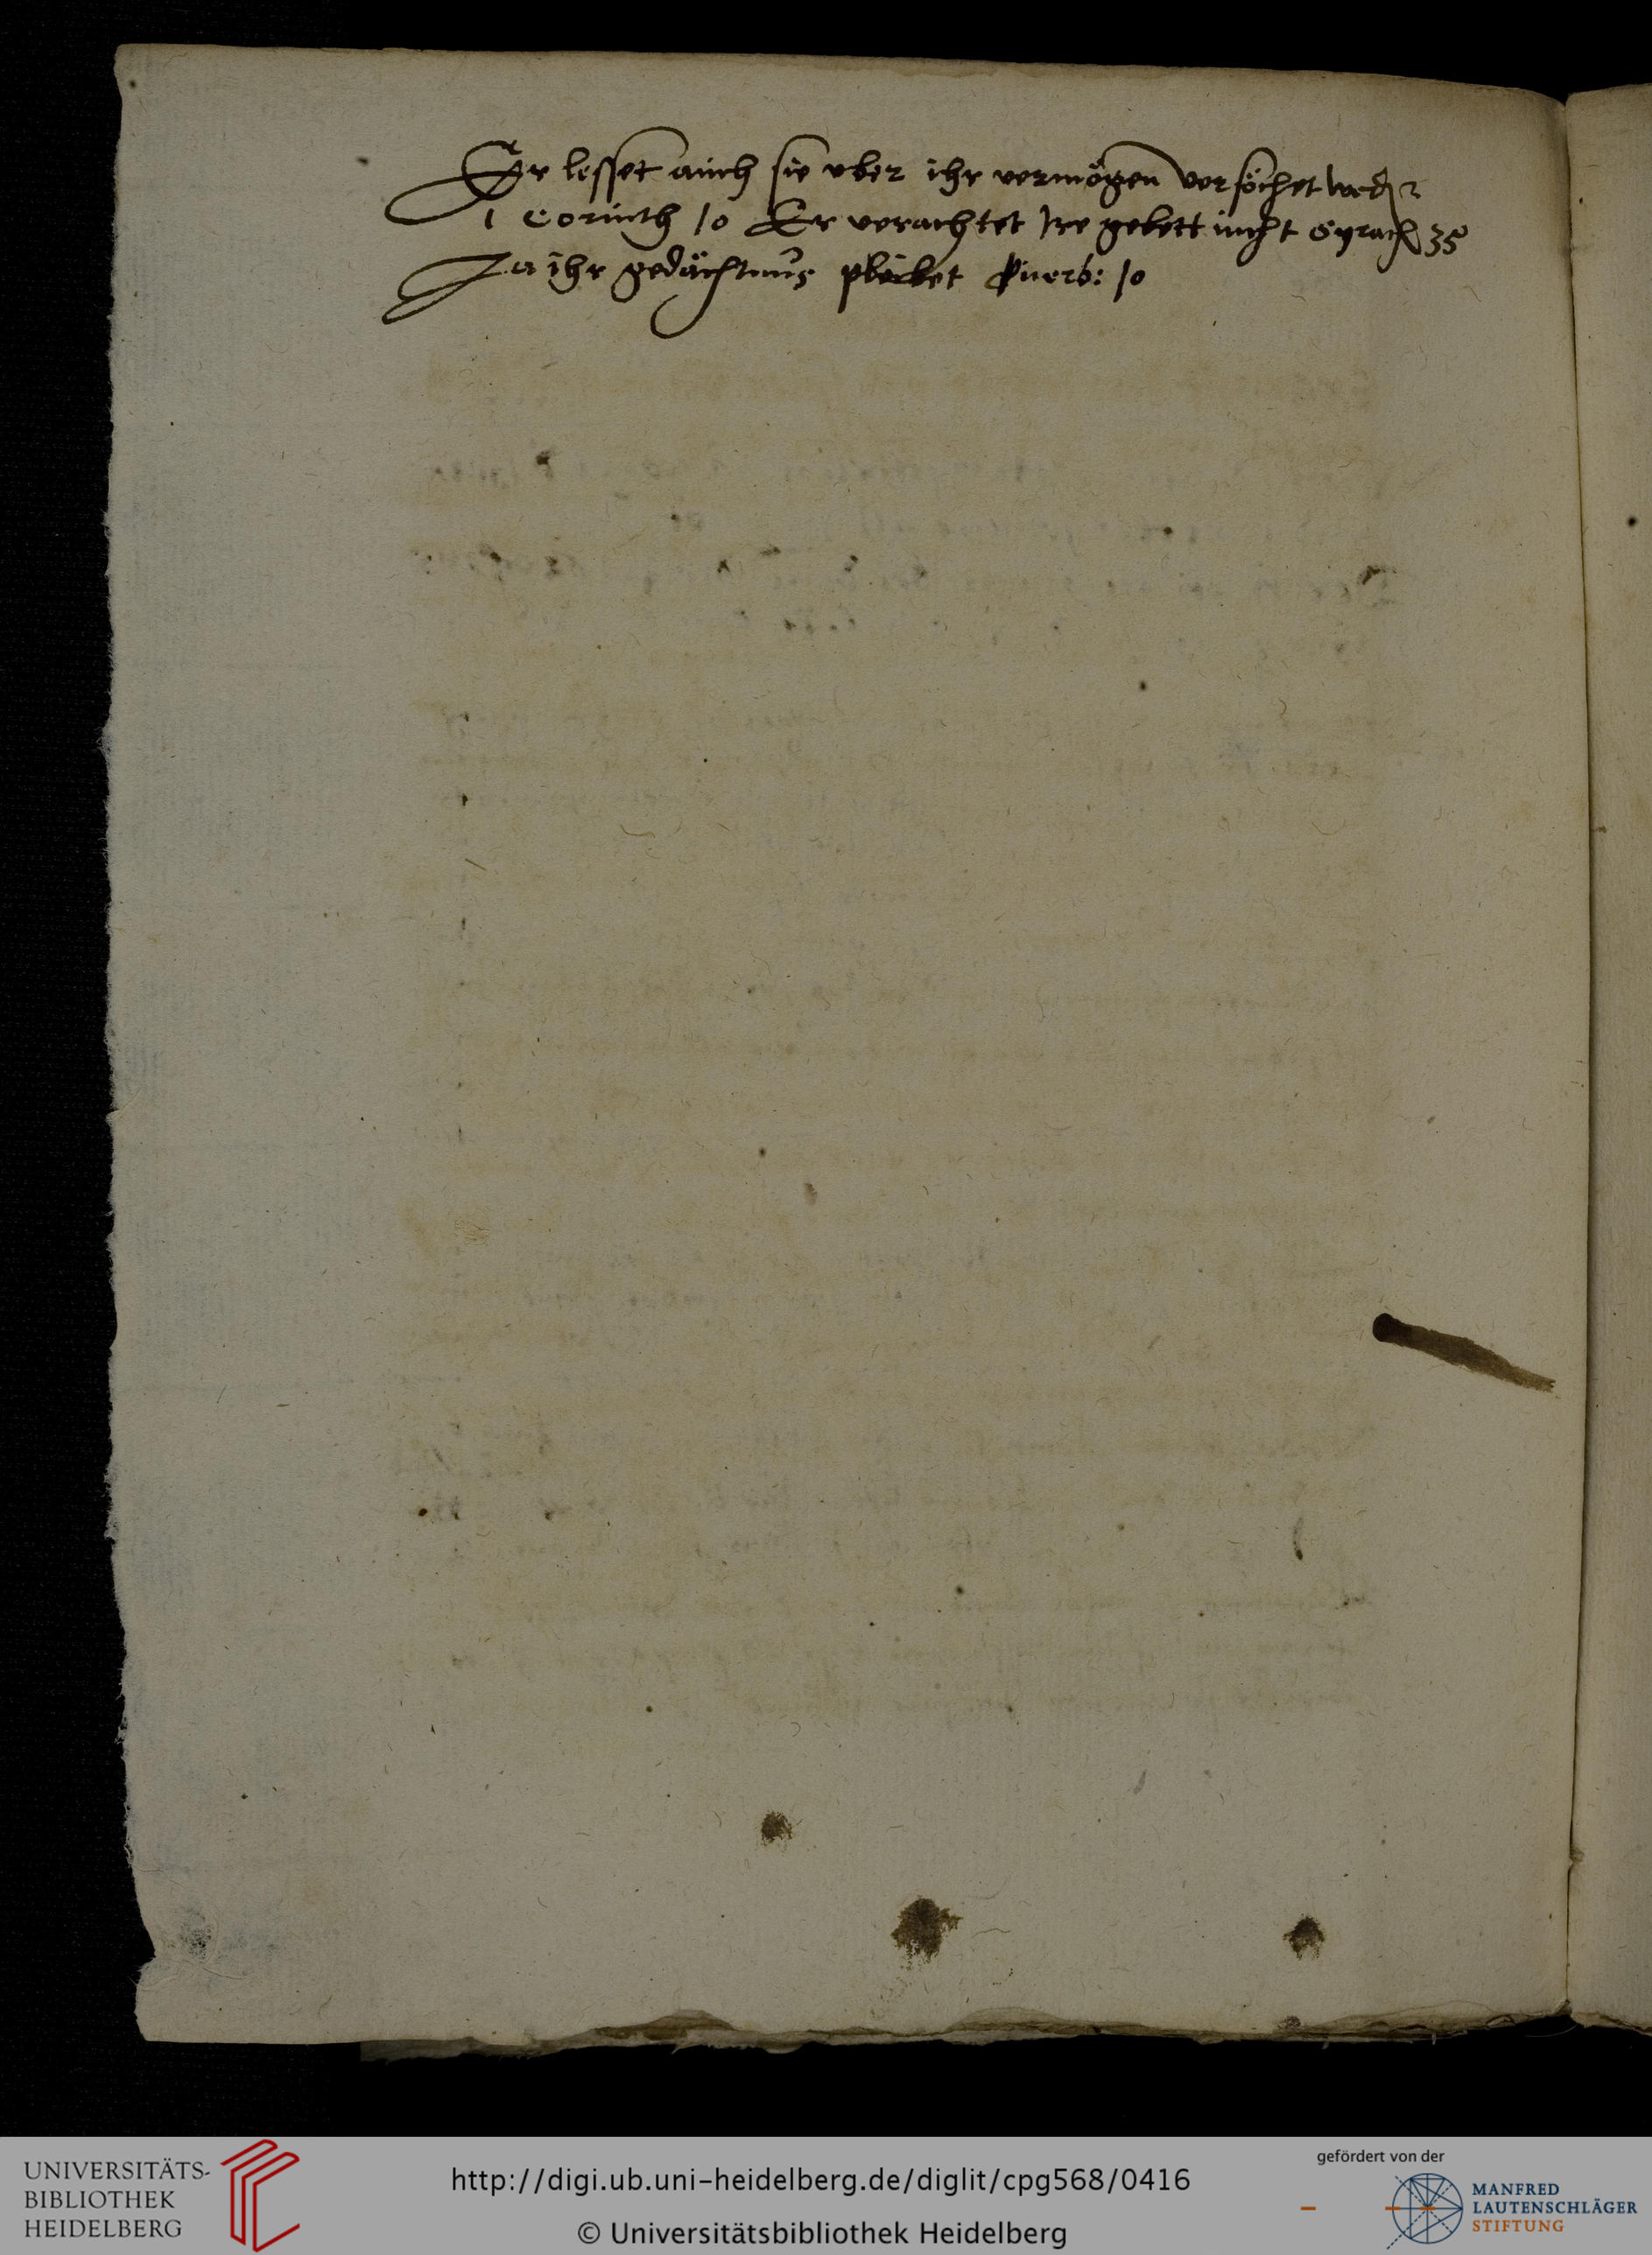 Er lesset auch sie vber ihr vermögen versöchet werden
1 Corinth 10 Er verachtet Ire gebett nicht Syrach 35
Ja ihr gedächtnus pleibet Puerb: 10
UNIVERSITÄTS-
BIBLIOTHEK
HEIDELBERG
http://digi.ub.uni-heidelberg.de/diglit/cpg568/0416
© Universitätsbibliothek Heidelberg
gefördert von der
MANFRED
LAUTENSCHLÄGER
STIFTUNG